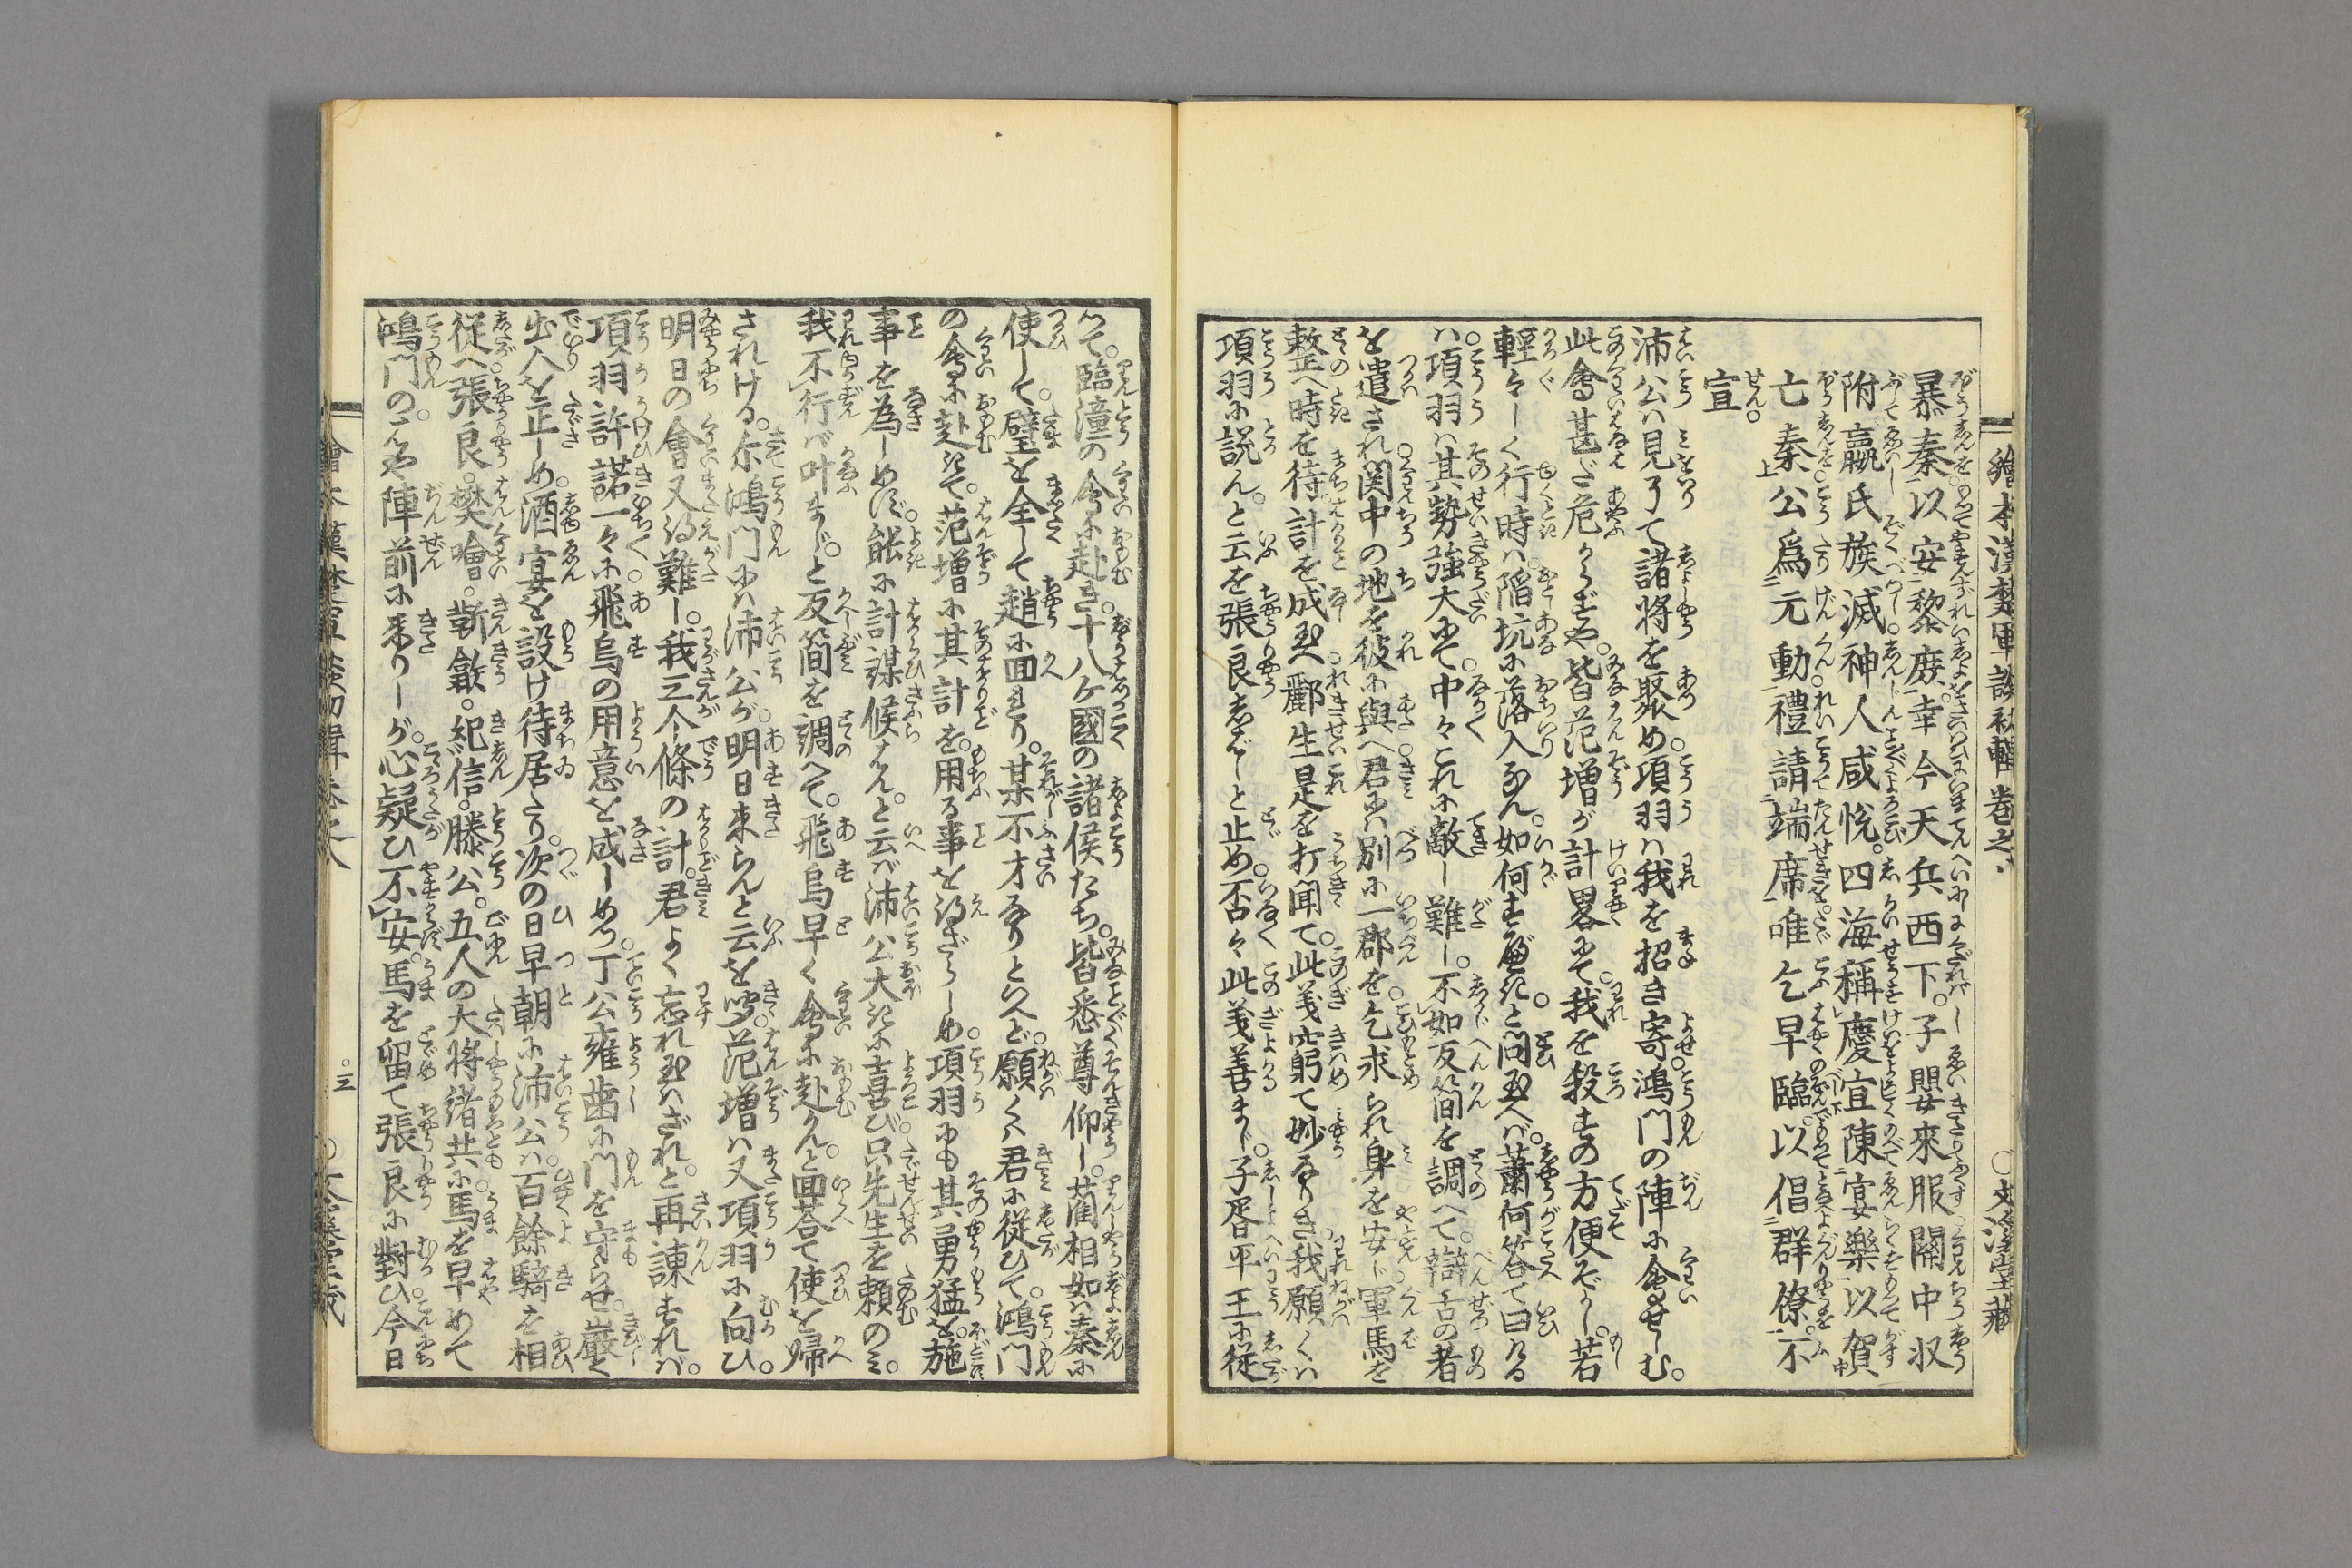 繪本漢楚軍談初輯 卷之八 ○文溪堂藏
暴秦以安黎庶幸今天兵西下。子嬰來服關中収
附嬴氏族滅神人咸悅。四海稱慶宜陳宴樂以賀
亡秦公爲元動禮請端席唯乞早臨。以倡群僚。不
宣
沛公ハ見了て諸将を聚め項羽ハ我を招き寄鴻門の陣に會せしむ。
此會甚だ危からずや。皆范増が計畧にて。我を殺すの方便ぞかし。若
輕々しく行時ハ陷坑に落入なん。如何すべきと問玉へバ。蕭何答て曰ける
ハ。項羽ハ其勢強大にて。中々これに敵し難し。不如反簡を調へて。辯舌の者
を遣され関中の地を彼に與へ君にハ別に一郡を。乞求られ身を安じ軍馬を
整へ時を待計を成玉へ。酈生是を打聞て。此義窮て妙なりき。我願くハ
項羽に説ん。と云を張良志ばしと止め。否々此義善まじ。子胥平王に従
ひて。臨潼の會に赴き。十八ケ國の諸侯たち。皆悉尊仰し。藺相如ハ秦に
使して。璧を全して趙に回れり。某不才なりといへど。願くハ君に従ひて。鴻門
の會に赴きて。范増に其計を。用る事を得ざらしめ。項羽にも其勇猛を。施
事を為しめず。能に計謀候はん。と云バ沛公大きに喜び只先生を頼のミ。
我不行バ叶まじ。と反簡を調へて。飛鳥早く會に赴かん。と回荅て使を帰
されける。尓鴻門にハ沛公が。明日来らんと云を聞。范増ハ又項羽に向ひ。
明日の會又得難し。我三个條の計。君よく忘れ玉ハざれ。と再諌すれバ。
項羽許諾一々に飛鳥の用意を成しめつ。丁公雍歯に門を守らせ。巌く
出入を正しめ。酒宴を設け待居たり。次の日早朝に沛公ハ。百餘騎を相
従へ張良。樊噲。靳歙。紀信。滕公。五人の大将諸共に。馬を早めて
鴻門の。はや陣前に来りしが。心疑ひ不安。馬を留て張良に對ひ今日
繪本漢楚軍談初輯卷之八 ○三 ○文溪堂藏